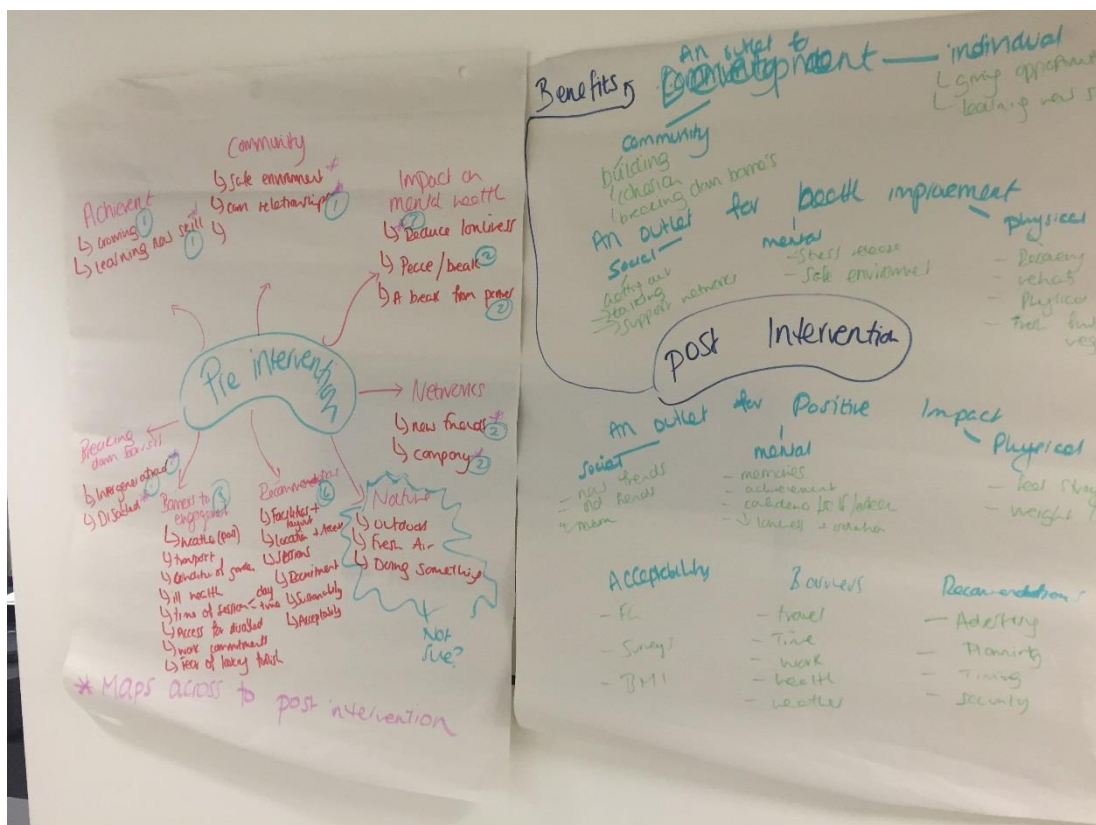 Community
↳ Safe environment *
↳ Com relationships * 1
↳
Achievement
↳ Growing 1
↳ Learning new skill * 1
Impact on
mental health
* 2
↳ Reduce lonliness
↳ Peace/break 2
↳ A break from partner 2
Pre intervention
Networks
↳ new friends * 2
↳ company * 2
Breaking
down
↳ Intergenerational *
↳ Disabled *
Barriers to 3
engagement
↳ weather (poor)
↳ transport
↳ Condition of garden
↳ ill health
↳ time of session < day
time
↳ Access for disabled
↳ work commitments
↳ fear of
Recommendations 6
↳ Facilities +
layout
↳ Location + Access
↳ sessions
↳ Recruitment
↳ Sustainability
↳ Acceptability
Nature
↳ outdoor
↳ Fresh Air
↳ Doing something
Not
sure?
* Maps across to post intervention
Benefits
An outlet to
individual
giving
learning new
community
building
cohesion
breaking down
An outlet for health improvement
Social
getting out
talking
support networks
mental
- Stress release
- Safe environment
physical
- Recovery
- rehab
- Physical
- Fresh
veg
post Intervention
An outlet for Positive Impact
social
- new friends
- old friends
mental
- memories
- achievement
- confidence
- ↓ loneliness + isolation
Physical
- feel
- weight
Acceptability
- FG
- Surveys
- BMI
Barriers
- travel
- Time
- work
- health
- weather
Recomendations
- Adverting
- Planning
- Timing
- security